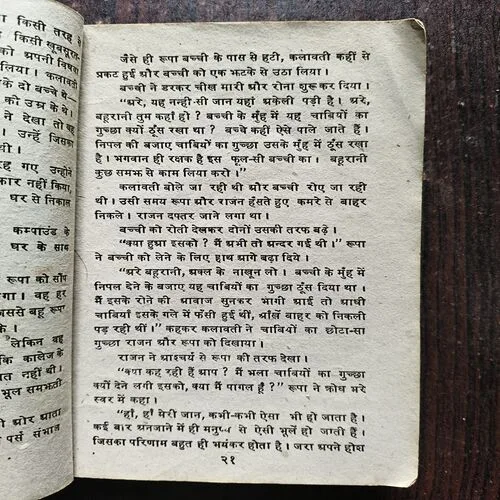 किसी तरह
किसी खूबसूरत
को अपनी विषमा
लिया। कलावती
के दो बच्चे थे—
की उम्र के थे।
ने देखा तो वह
उन्हें जिसका
रह गए उन्होंने
कार नहीं किया,
घर से निकाल
कम्पाउंड के
घर के साथ
रूपा को सौंप
गा। वह हर
जससे बहू रूपा
लेकिन वह
कि कालेज के
ात नहीं थी।
भूल समझती
थी और आता
पर्स संभाल
जैसे ही रूपा बच्ची के पास से हटी, कलावती कहीं से
प्रकट हुई और बच्ची को एक झटके से उठा लिया।
बच्ची ने डरकर चीख मारी और रोना शुरू कर दिया।
“अरे, यह नन्ही-सी जान यहां अकेली पड़ी है। अरे,
बहूरानी तुम कहां हो? बच्ची के मुँह में यह चाबियों का
गुच्छा क्यों ठूँस रखा था? बच्चे कहीं ऐसे पाले जाते हैं।
निपल की बजाए चाबियों का गुच्छा उसके मुँह में ठूँस रखा
है। भगवान ही रक्षक है इस फूल-सी बच्ची का। बहूरानी
कुछ समझ से काम लिया करो।”
कलावती बोले जा रही थी और बच्ची रोए जा रही
थी। उसी समय रूपा और राजन हँसते हुए कमरे से बाहर
निकले। राजन दफ्तर जाने लगा था।
बच्ची को रोती देखकर दोनों उसकी तरफ बढ़े।
“क्या हुआ इसको? मैं अभी तो अन्दर गई थी।” रूपा
ने बच्ची को लेने के लिए हाथ आगे बढ़ा दिये।
“अरे बहूरानी, अक्ल के नाखून लो। बच्ची के मुँह में
निपल देने के बजाए यह चाबियों का गुच्छा ठूँस दिया था।
मैं इसके रोने की आवाज सुनकर भागी आई तो आधी
चाबियाँ इसके गले में फँसी हुई थीं, आँखें बाहर को निकली
पड़ रही थीं।” कहकर कलावती ने चाबियों का छोटा-सा
गुच्छा राजन और रूपा को दिखाया।
राजन ने आश्चर्य से रूपा की तरफ देखा।
“क्या कह रही हैं आप? मैं भला चाबियों का गुच्छा
क्यों देने लगी इसको, क्या मैं पागल हूँ?” रूपा ने क्रोध भरे
स्वर में कहा।
“हाँ, हाँ मेरी जान, कभी-कभी ऐसा भी हो जाता है।
कई बार अनजाने में ही मनुष्य से ऐसी भूलें हो जाती हैं
जिसका परिणाम बहुत ही भयंकर होता है। जरा अपने होश
२१